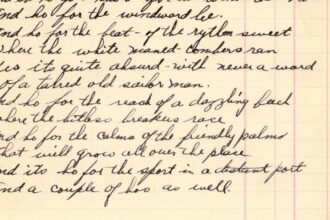 And ho for the windward lee.
And ho for the feat - of the rythm sweet
where the white maned combers ran
its quite absurd - with never a word
of a tarred old sailor man.
And ho for the reach of a dazzling beach
where the bitless breakers race
And ho for the calms of the friendly palms
that will grow all over the place
And its ho for the sport in a distant port
And a couple of hos as well.